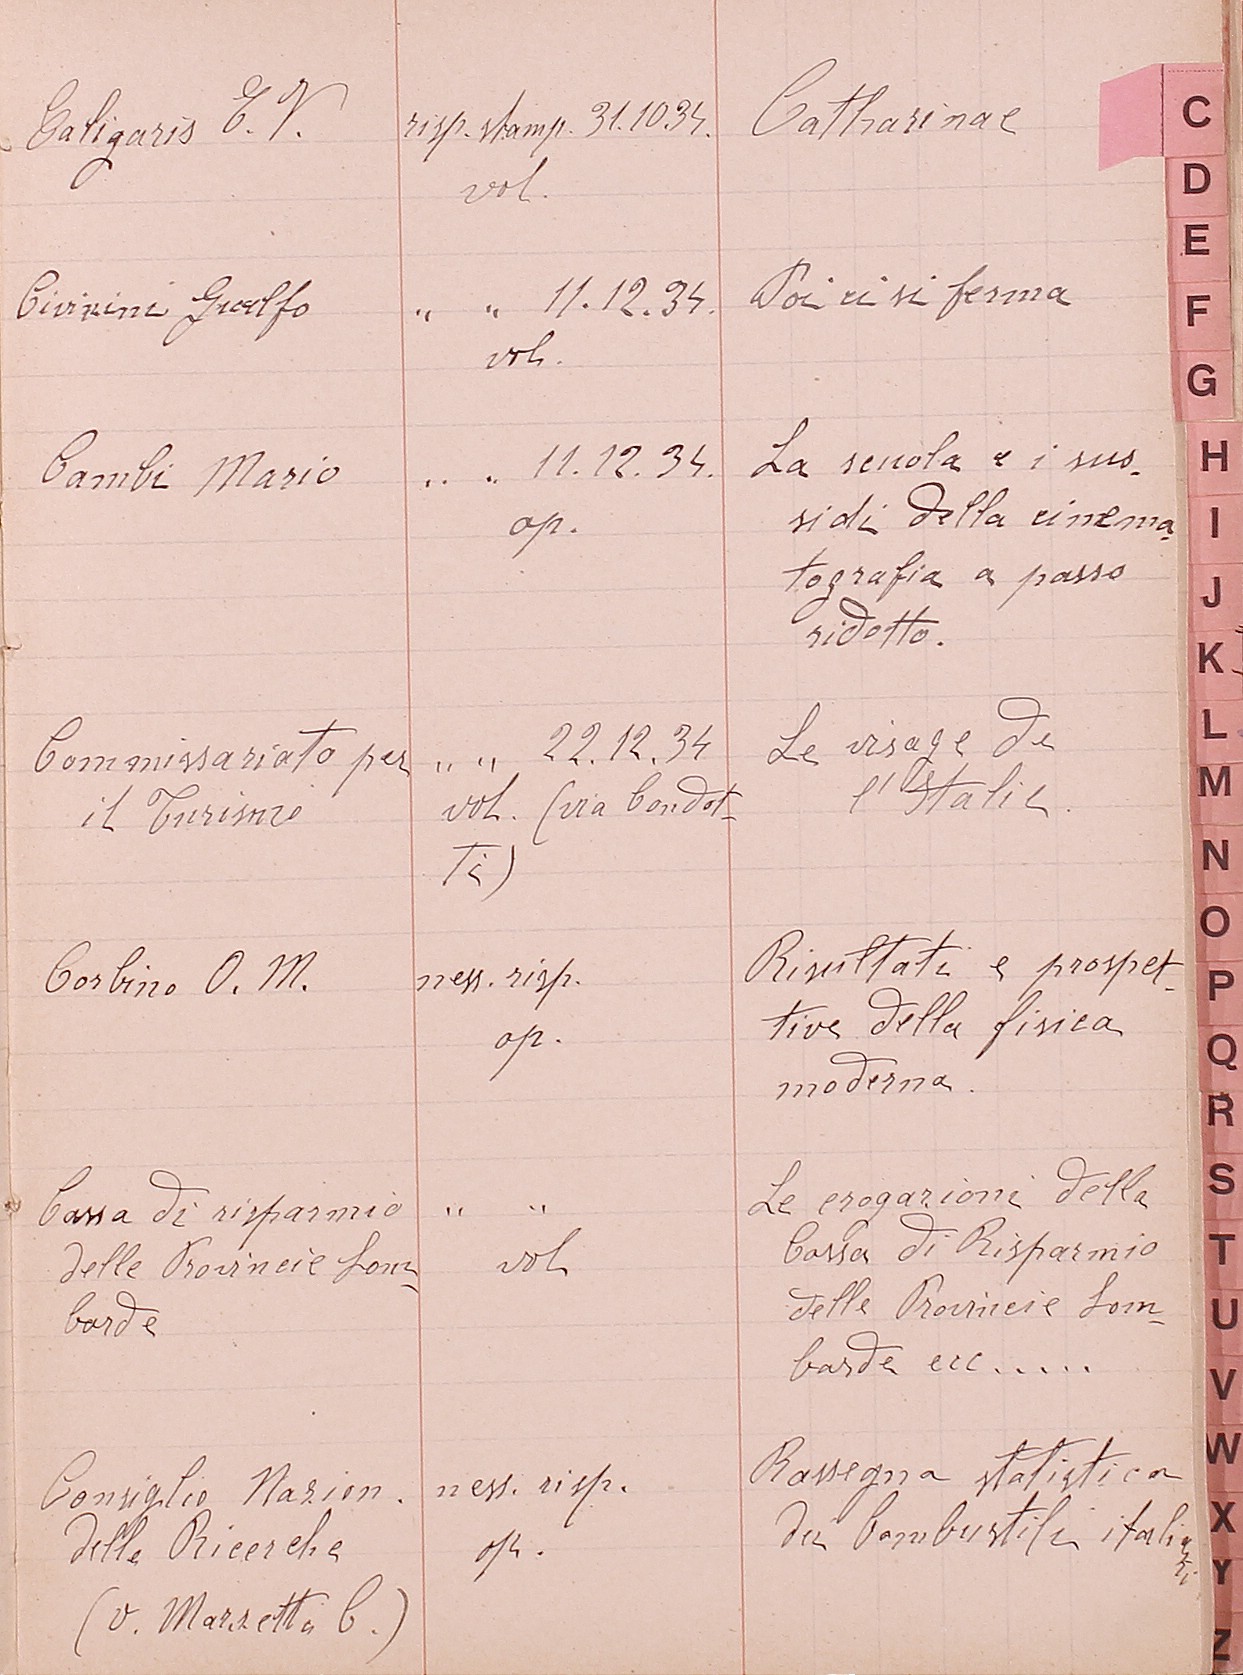 Caligaris E. V. risp. stamp. 31.10.34. Catharinae
vol.
Civinini Guelfo " " 11.12.34. Poi ci si ferma
vol.
Cambi Mario " " 11.12.34. La scuola e i sus-
op. sidi della cinema-
tografia a passo
ridotto.
Commissariato per " " 22.12.34 Le visage de
il Turismo vol. (via Condot- l'Italie.
ti)
Corbino O. M. ness. risp. Risultati e prospet-
op. tive della fisica
moderna.
Cassa di risparmio " " Le erogazioni della
delle Provincie Lom- vol Cassa di Risparmio
barde delle Provincie Lom-
barde ecc.....
Consiglio Nazion. ness. risp. Rassegna statistica
delle Ricerche op. dei Combustili italiani
(v. Marzetti C.)
C
D
E
F
G
H
I
J
K
L
M
N
O
P
Q
R
S
T
U
V
W
X
Y
Z